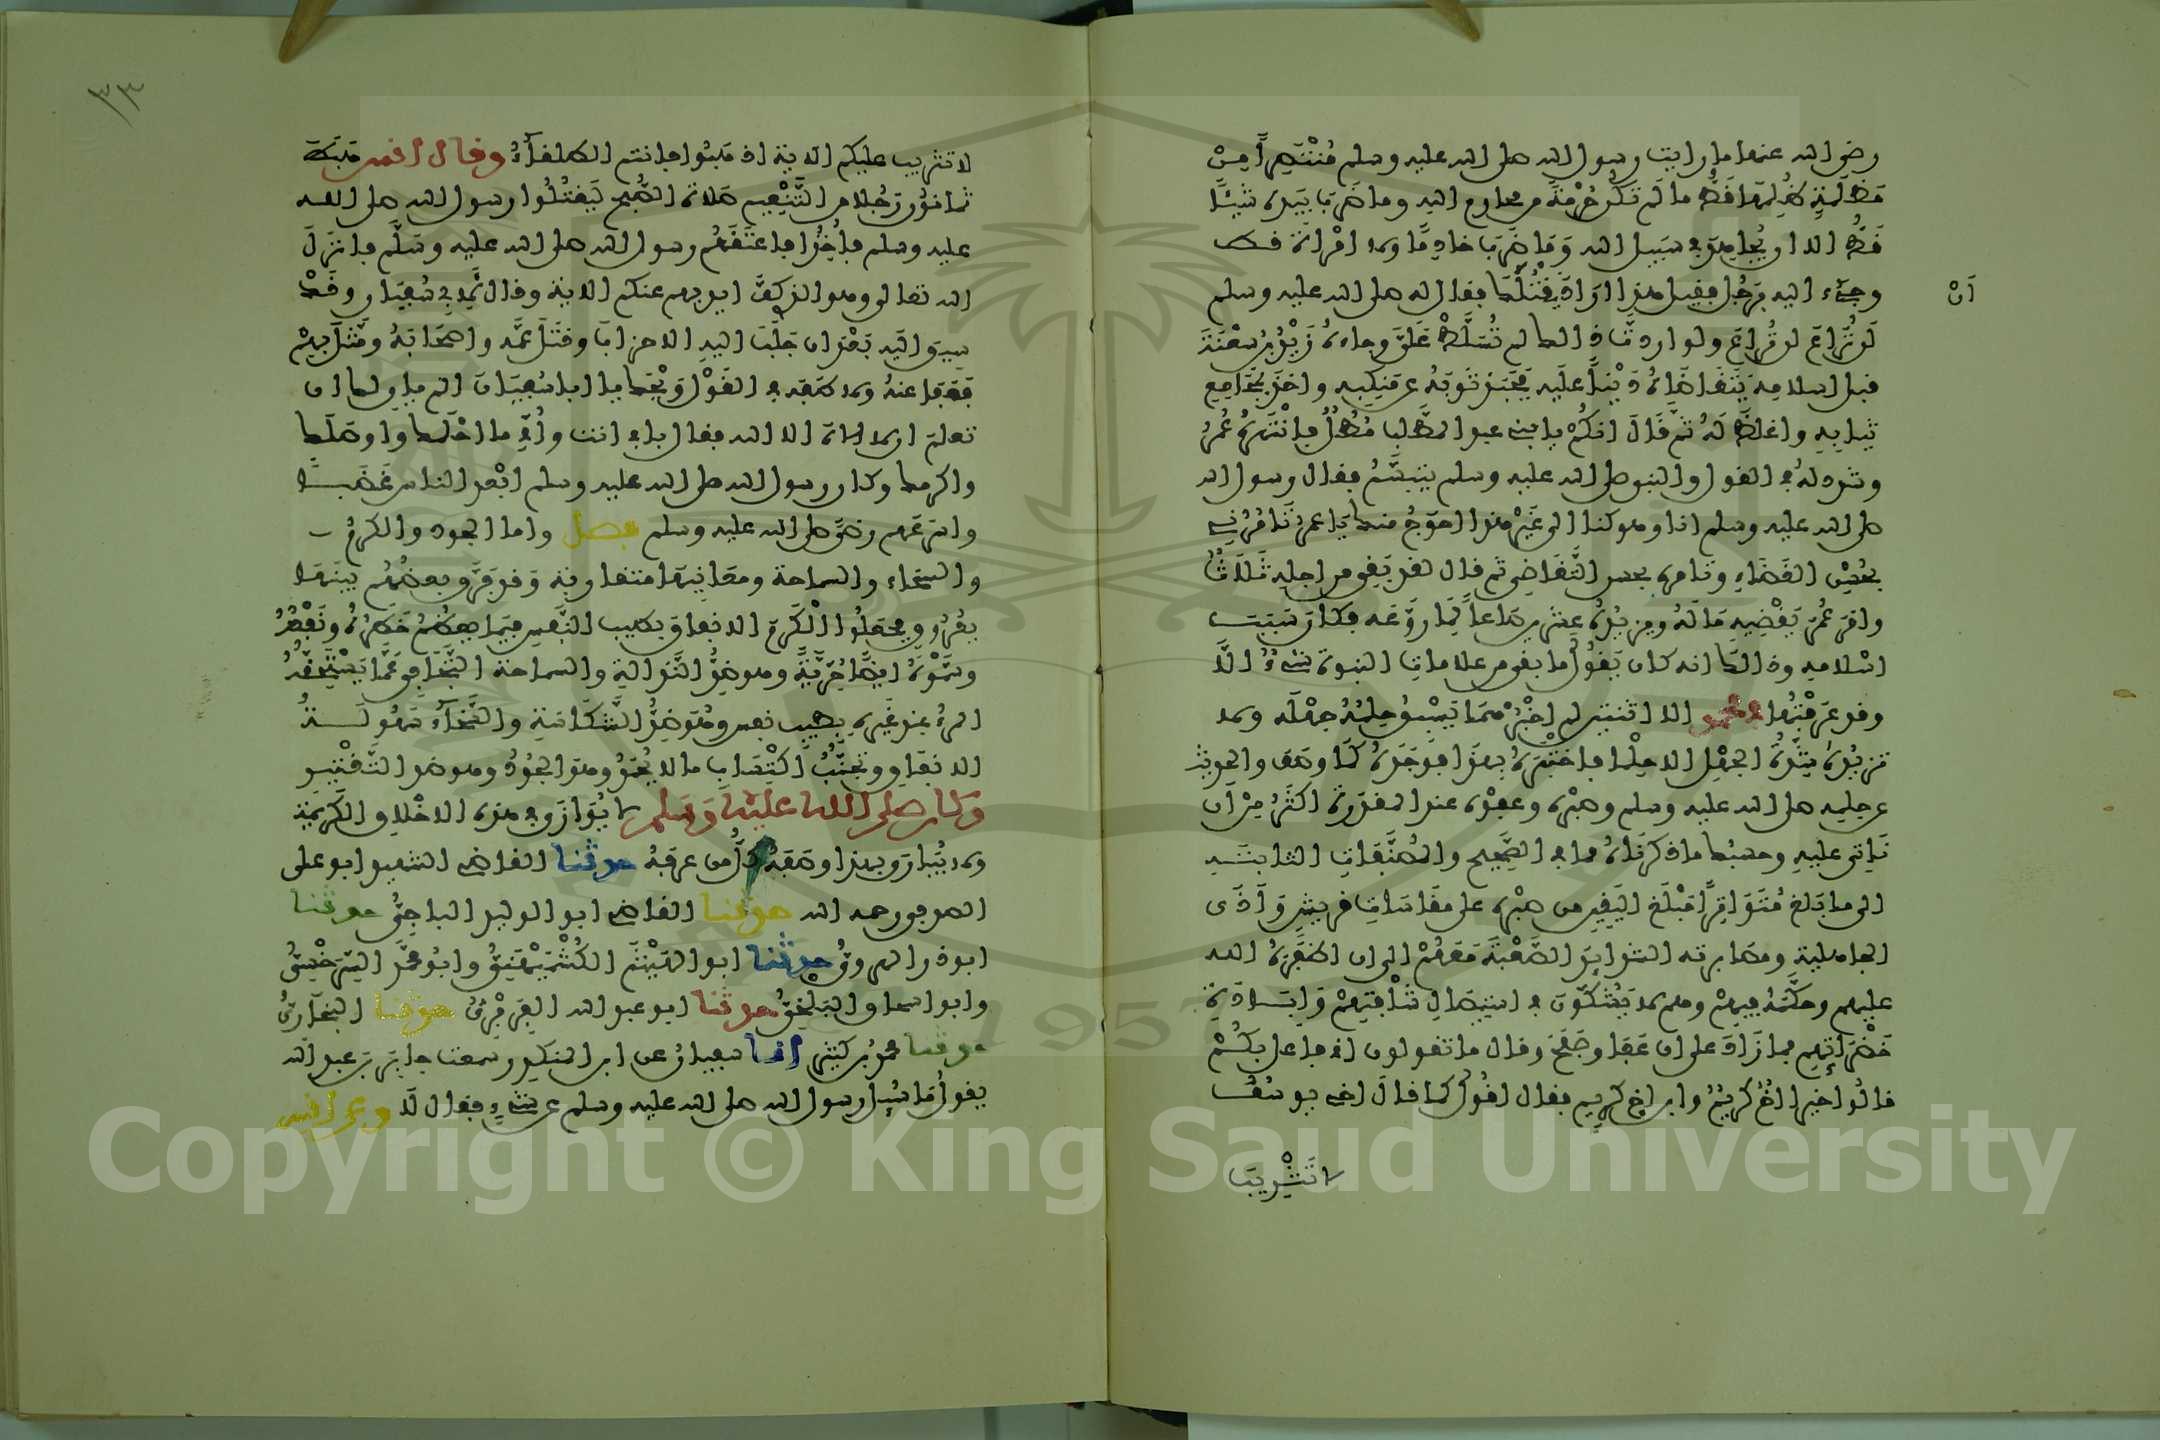 رضي الله عنها ما رايت رسول الله صلى الله عليه وسلم مُنْتَصِراً مِنْ
مَظْلَمَةٍ ظُلِمَهَا قَطُّ ما لم تَكُن حُرْمَةً من محارم الله وما ضَرَبَ بيَدِه شَيْئًا
قَطُّ الا ان يُجاهِدَ في سَبِيل الله وَمَا ضَرَبَ خادِمًا ولا امْرَاَة قط
وجِيْءَ اليه بِرَجُل فقيل هذا ارَادَ يَقْتُلَكَ فقال له صلى الله عليه وسلم
اَنْ
لَن تُرَاعَ لن تُرَاعَ ولو اردتَّ ذالك لم تُسَلَّطْ عَلَيَّ وجاءه زَيْدُ بْنُ سَعْنَةَ
قبل اسلامِه يَتَقَاضَاهُ دَيْناً عَلَيْه فَجَبَذَ ثَوبَهُ عن مَنكِبِه واخذ بمَجَامِعِ
ثيابِهِ واغلظَ لَهُ ثم قَالَ انكُمْ يا بني عبد المطَّلب مُطْلٌ فانْتَهَرَهُ عُمَرُ
وشدد لهُ في القول والنبي صلى الله عليه وسلم يتبسَّمُ فقال رسول الله
صلى الله عليه وسلم انا وهو كنا الى غَيْرِ هذا احوَجُ منك يَا عمرُ تَامُرُني
بحُسْنِ القَضَاءِ وتَامره بحسن التَّقَاضِي ثم قال لقد بَقِيَ من اجلِهِ ثَلَاثٌ
وامَرَ عُمَرَ يَقْضِيهِ مَا لَهُ ويزيدُهُ عِشْرين صَاعاً لِمَا رَوَّعَه فكَانَ سَبَبَ
اسْلامِه وذالك انه كان يَقُولُ ما بقي من علاماتِ النبوة شيءٌ الَّا
وقد عَرَفْتُها في محمد الا اثنتين لم اخْبُرْهُمَا يَسْبِقُ حِلمُهُ جهْلَه ولا
تزيدُه شِدَّةُ الجهْلِ الا حِلْمًا فاخْتَبَرَهُ بهذَا فوَجَدَهُ كمَا وصَفَ والحديث
عن حلمِه صلى الله عليه وسلم وصَبْرِه وعفْوِه عند المقدرة اكثَرُ مِنْ اَن
نَاتِيَ عَلَيهِ وحسبُك ما ذكرنَاهُ مما في الصَّحيح والمُصَنَّفاتِ الثابتَــة
الى ما بَلَغ مُتَوَاتِرًا مَبْلَغَ اليَقِينِ من صَبْرِه على مقَاسَاتِ قريشٍ وَاَذَى
الجاهلية ومصَابرته الشدايدَ الصَّعْبَةَ مَعَهُمْ الى ان اظفَرَهُ الله
عليهم وحكَّمَهُ فيهِمْ وهم لا يَشُكُّونَ في اسْتِيصَالِ شَافَتِهِمْ وَاِبَـادَةِ
خَضْرَائِهِم فما زَادَ على ان عَفَا وصَفَحَ وقال ما تقولون اني فاعل بِكُمْ
قالُوا خيراً اخٌ كريمٌ وابن اخٍ كريم فقال اقُولُ كما قالَ اخي يوسُف
لا تَثْرِيبَ
٣٣
لا تثريب عليكم الاية اذهبُوا فانتم الطلقآءُ وقال انس هَبَطَ
ثمانُون رَجُلا من التَّنْعِيم صَلاةَ الصُّبح ليَقتُلُوا رسول الله صلى الله
عليه وسلم فاُخِذُوا فاعتَقَهُم رسول الله صلى الله عليه وسَلَّم فانزَلَ
الله تعالى وهو الذي كفَّ ايديهم عنكم الاية وقال لِأَبِي سُفيَان وقَدْ
سِيقَ اليْهِ بَعْدَ ان جَلَبَ اليهِ الاحزابَ وقتَلَ عمَّه واصحَابَهُ ومَثَّلَ بهِمْ
فَعَفا عنهُ ولاطَفه في القَوْل وَيْحَك يا ابا سُفيَان الم يانِ لك ان
تعلمَ ان لا اِلاهَ الا الله فقال بابي انت واُمِّي ما احْلَمك واوصَلَك
واكرمك وكان رسول الله صلى الله عليه وسلم ابْعد الناس غَضَبــا
واسرَعَهم رضًى صلى الله عليه وسلم فصل واما الجود والكرَمُ
والسخاء والسماحة ومعَانِيهَا متقاربة وَقد فَرَّق بعضُهُم بينَهَا
بفُرُوقٍ فجَعَلُوا الْكَرَمَ الانفاقَ بطيب النَّفس فِيمَا يعظُمُ خَطَرُهُ ونَفْعُهُ
وسَمَّوْهُ ايضًا حُرِّيَّةً وهو ضِدُّ النَّذَالةِ والسماحة التَّجَافِي عَمَّا يَسْتَحِقُّهُ
المرءُ عند غَيْرِه بطِيب نفس وهُوَ ضِدُّ الشَّكَاسَةِ والسَّخَآءُ سُهُولَــةُ
الانفَاقِ وتجنُّبُ اكْتسَابِ ما لا يُحْمَدُ وهوَ الجُودُ وهو ضد التَّقْتِيرِ
وكان صلى الله عليه وسلم لا يُوَازَى في هذه الاخْلاقِ الكَرِيمةِ
ولا يُبَارَى بهذا وصَفَهُ كلُّ من عرفهُ حدثنا القاضي الشهيد ابو على
الصدفي رحمه الله حدثنا القاضي ابو الوليد الباجِيُّ حدثنا
ابو ذر الهرويُّ حدثنا ابو الهَيْثَم الكُشْمِيهَنِيُّ وابُو محمَّد السَّرَخْسِيُّ
وابو اسحاق البَلْخِيُّ حدثنا ابو عبد الله الفِرَبْرِيُّ حدثنا البخاريُّ
حدثنا محمدُ بن كثيرٍ انا سفيانُ عن ابن المنكدر سمعتُ جابِرَ بنَ عبد الله
يقولُ مَا سُئِل رسول الله صلى الله عليه وسلم عن شيءٍ فقال لَا وعن انس